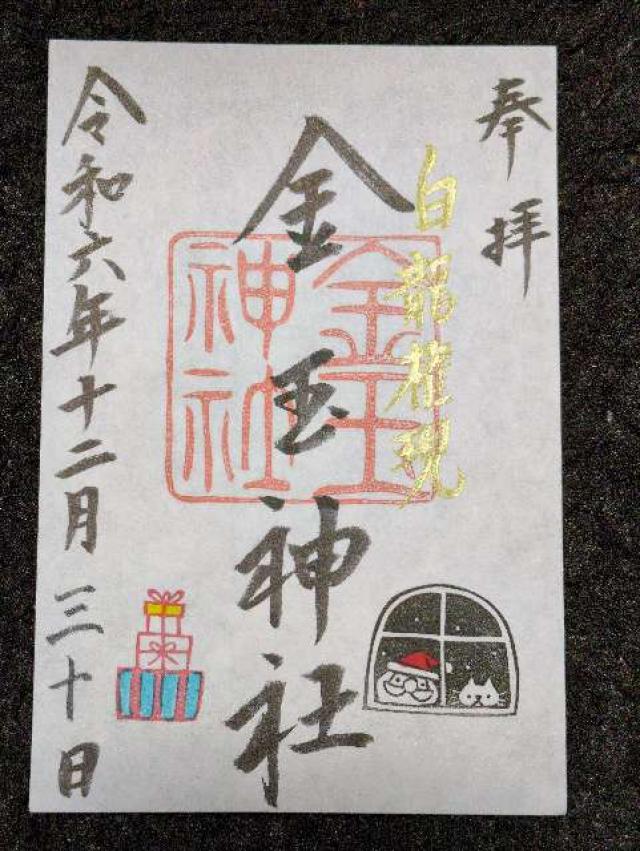 奉拝
白龍権現
金玉神社
金玉神社
令和六年十二月三十日